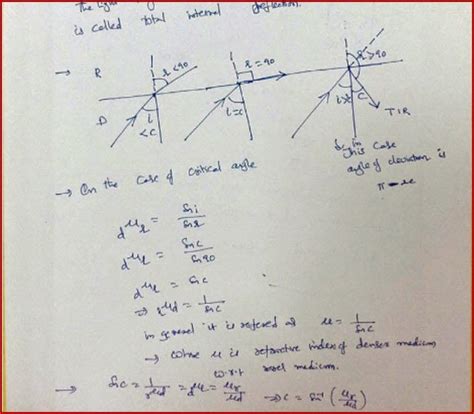 The light
is called total internal reflection.
→ R r<90 r=90 r>90
D i<c i=c i>c c TIR
So in this case
angle of deviation is
π-2c
→ On the case of critical angle
dμr = Sini/Sinr
dμr = Sinc/Sin90
dμr = Sinc
⇒ rμd = 1/Sinc
in general it is refered as μ = 1/Sinc
→ where μ is refractive index of denser medium
w.r.t rarer medium.
→ Sinc = 1/rμd = dμr = μr/μd ⇒ c = Sin⁻¹(μr/μd)